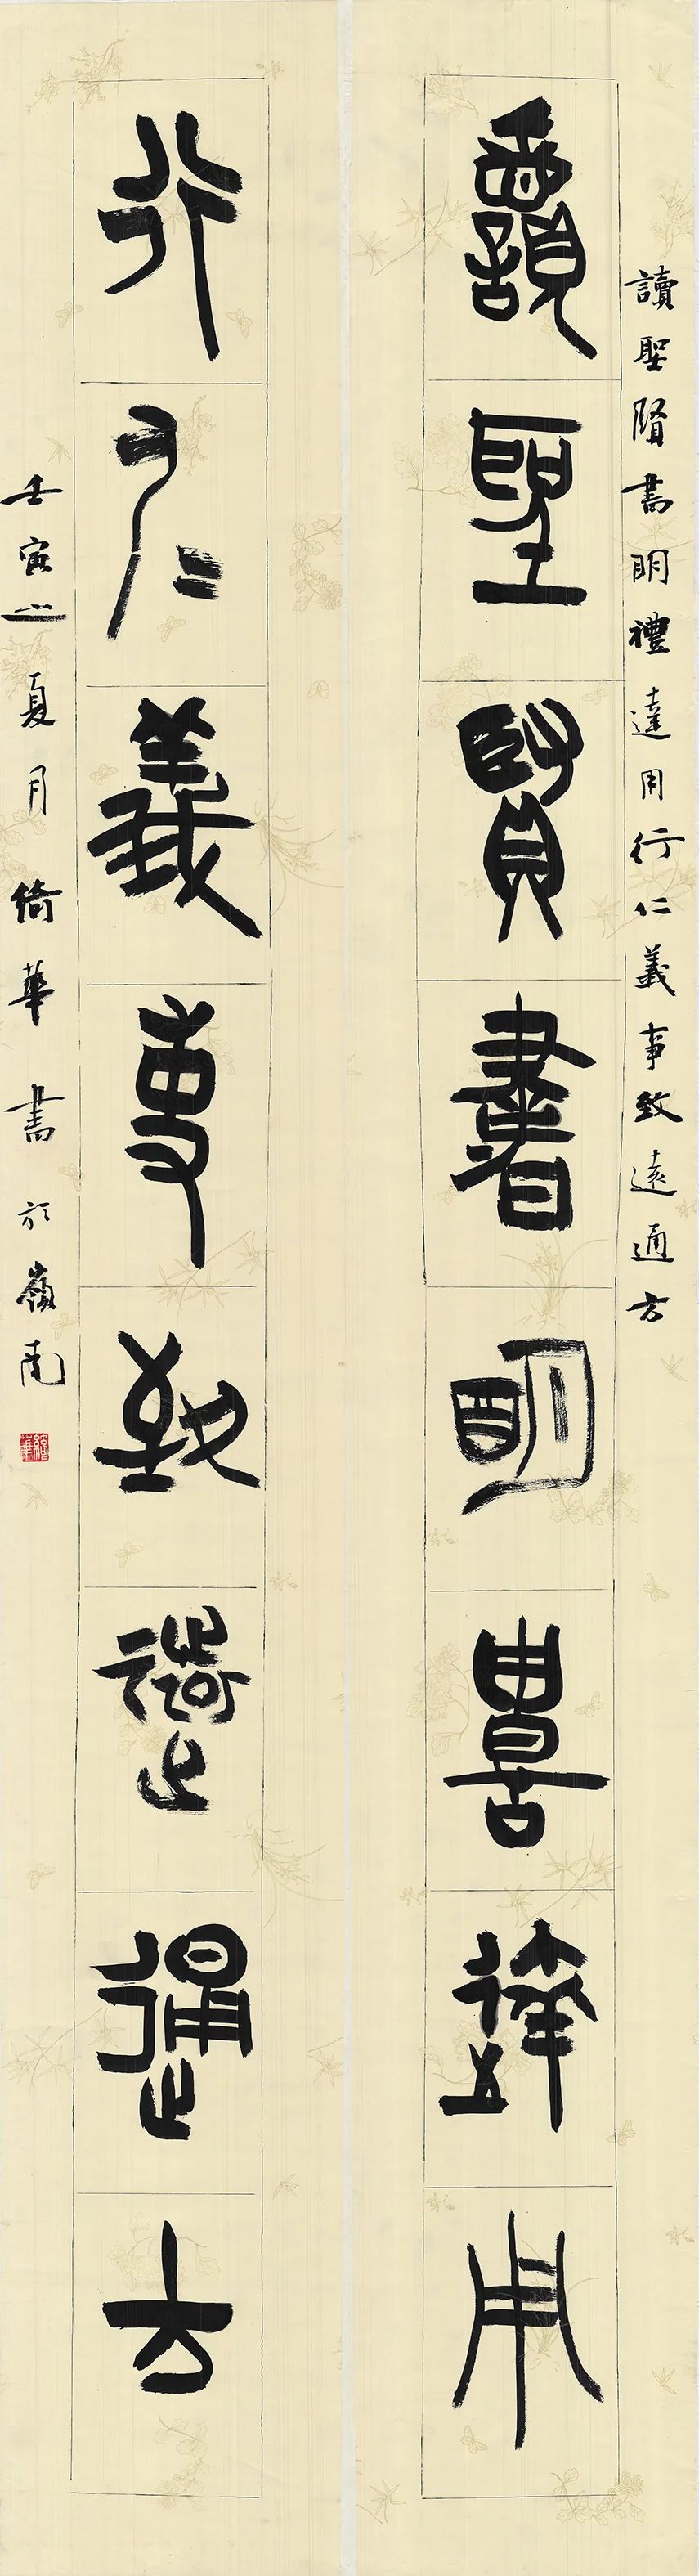 讀聖賢書明禮達用行仁義事致遠通方
讀聖賢書明禮達用
行仁義事致遠通方
壬寅之夏月倚華書於嶺南